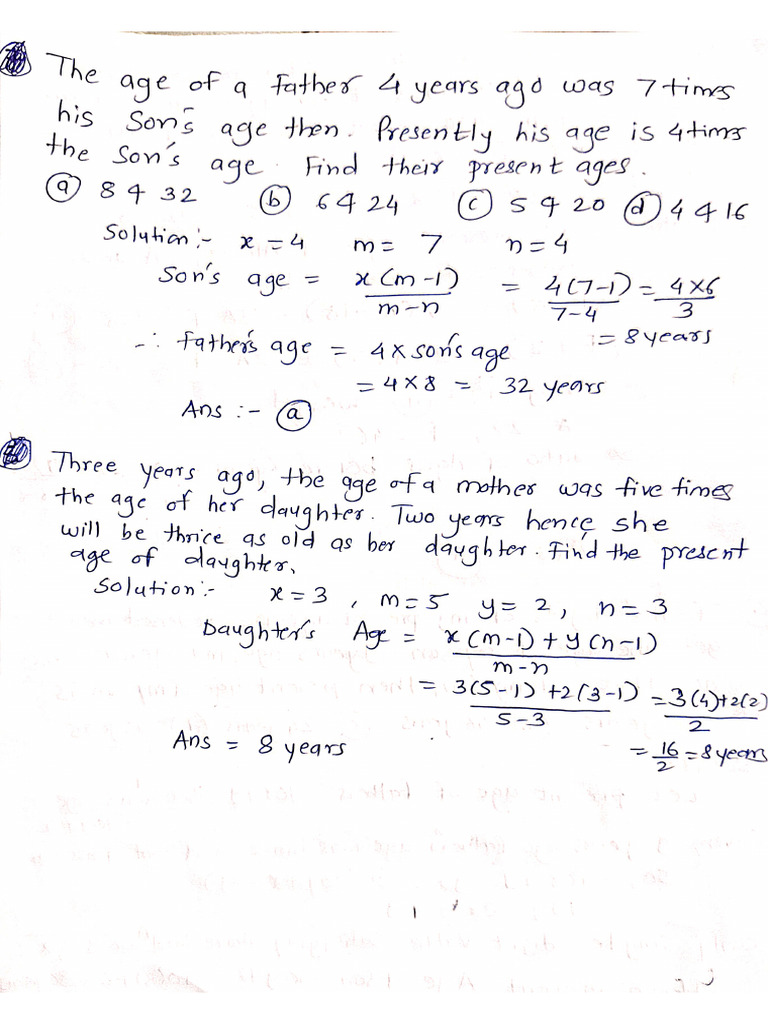 The age of a Father 4 years ago was 7 times
his Son's age then. Presently his age is 4 times
the Son's age. Find their present ages.
(a) 8 & 32 (b) 6 & 24 (c) 5 & 20 (d) 4 & 16
Solution:- x = 4 m = 7 n = 4
Son's age = x(m-1)/m-n = 4(7-1)/7-4 = 4×6/3
= 8 years
∴ Father's age = 4 × son's age
= 4 × 8 = 32 years
Ans :- (a)
Three years ago, the age of a mother was five times
the age of her daughter. Two years hence she
will be thrice as old as her daughter. Find the present
age of daughter.
Solution:- x = 3, m = 5 y = 2, n = 3
Daughter's Age = x(m-1) + y(n-1)/m-n
= 3(5-1) + 2(3-1)/5-3 = 3(4)+2(2)/2
Ans = 8 years = 16/2 = 8 years